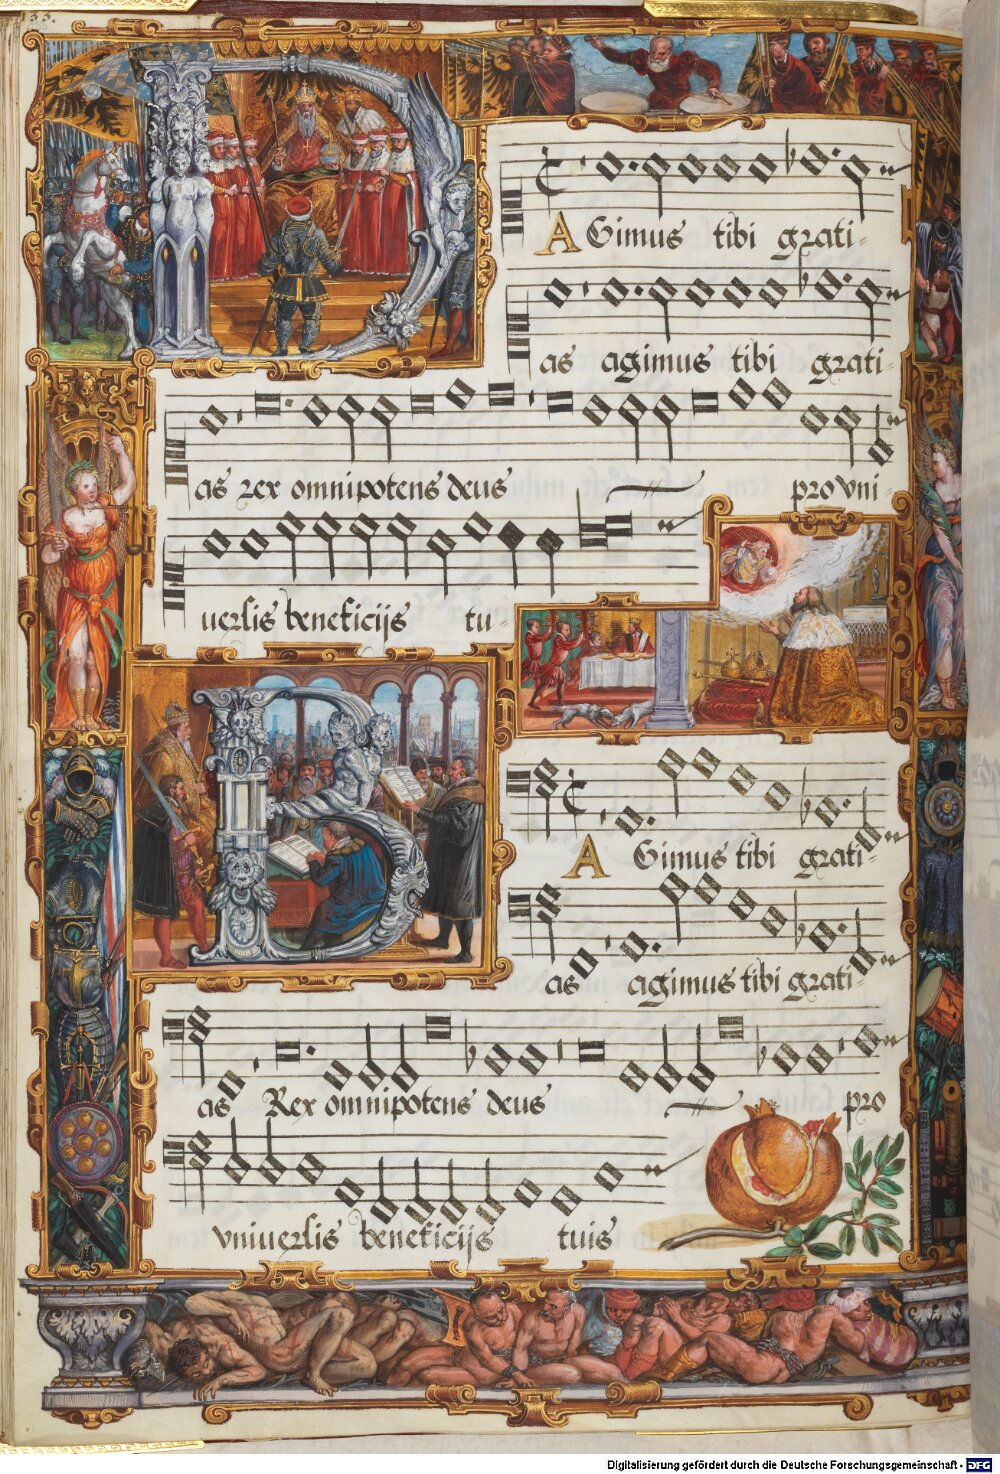 33.
D
AGimus tibi grati-
as agimus tibi grati
as rex omnipotens deus pro vni-
uersis beneficijs tu-
B
AGimus tibi grati-
as agimus tibi grati-
as Rex omnipotens deus pro
vniuersis beneficijs tuis
Digitalisierung gefördert durch die Deutsche Forschungsgemeinschaft - DFG